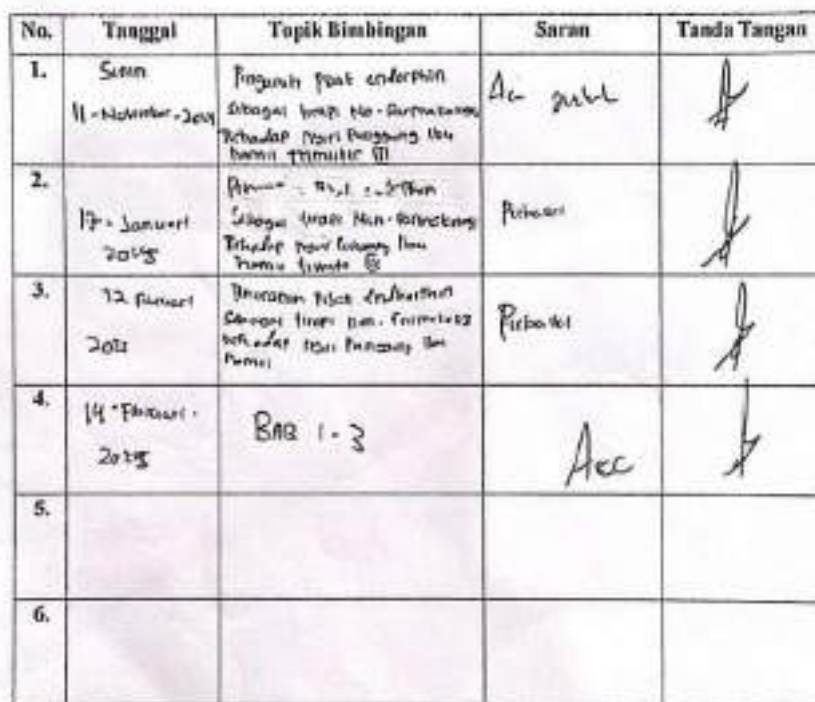 No. Tanggal Topik Bimbingan Saran Tanda Tangan
1. Senin
11-November-2024
Pengaruh Pijat endorphin
Sebagai terapi No-Farmakologi
Terhadap nyeri Punggung Ibu
hamil trimester III
Acc judul
2. 17-Januari
2025
Sebagai terapi Non-farmakologi
Terhadap nyeri Punggung Ibu
hamil
Perbaiki
3. 12 Februari
2025
Pijat Endorphin
Sebagai terapi Non-Farmakologi
terhadap nyeri Punggung Ibu
Hamil
Perbaiki
4. 14-Februari-
2025
BAB 1-3
Acc
5.
6.